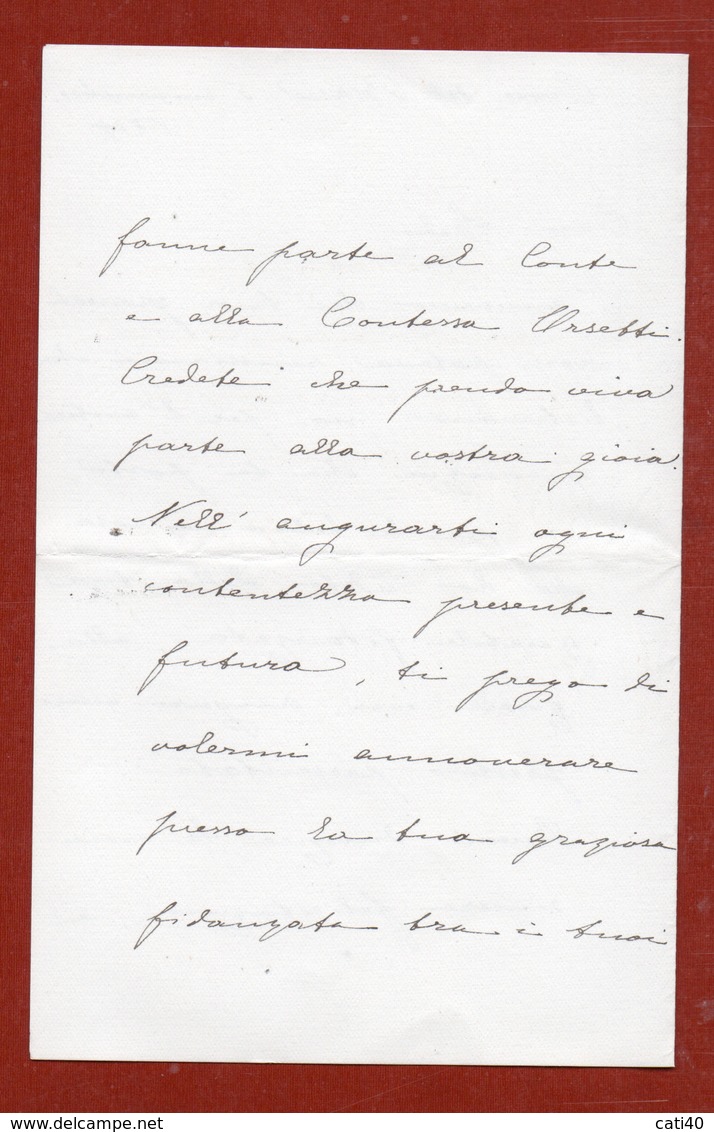 fanne parte al Conte
e alla Contessa Orsetti.
Credete che prendo viva
parte alla vostra gioia.
Nell' augurarti ogni
contentezza presente e
futura, ti prego di
volermi annoverare
presso la tua graziosa
fidanzata tra i tuoi
cati40